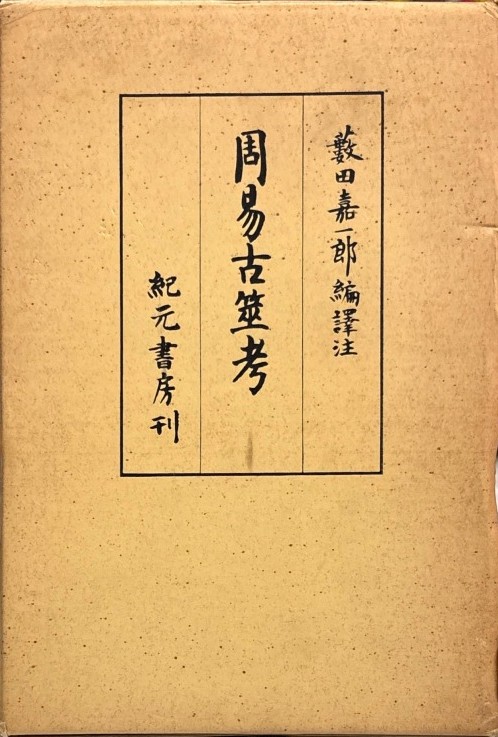 藪田嘉一郎編譯注
周易古筮考
紀元書房刊